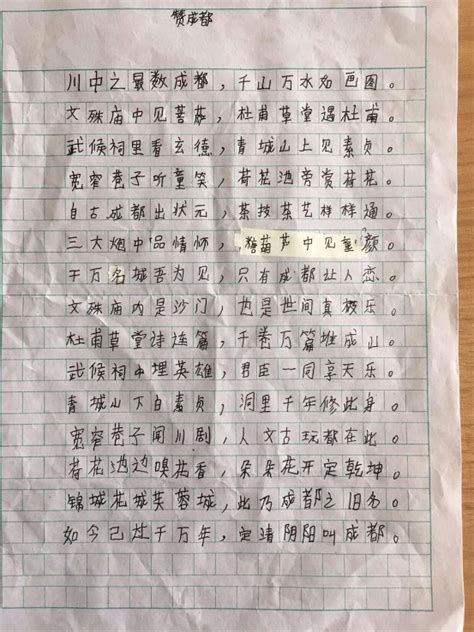 赞成都
川中之最数成都，千山万水如画图。
文殊庙中见菩萨，杜甫草堂遇杜甫。
武候祠里看玄德，青城山上见素贞。
宽窄巷子听童笑，荷花池旁赏荷花。
自古成都出状元，茶技茶艺样样通。
三大炮中品情怀，糖葫芦中见童颜。
千万名城吾为见，只有成都让人恋。
文殊庙内是沙门，也是世间真极乐。
杜甫草堂诗连篇，千卷万篇堆成山。
武候祠中埋英雄，君臣一同享天乐。
青城山下白素贞，洞里千年修此身。
宽窄巷子闻川剧，人文古玩都在此。
荷花池边嗅花香，朵朵花开定乾坤。
锦城花城芙蓉城，此乃成都之旧名。
如今已过千万年，定清阴阳叫成都。